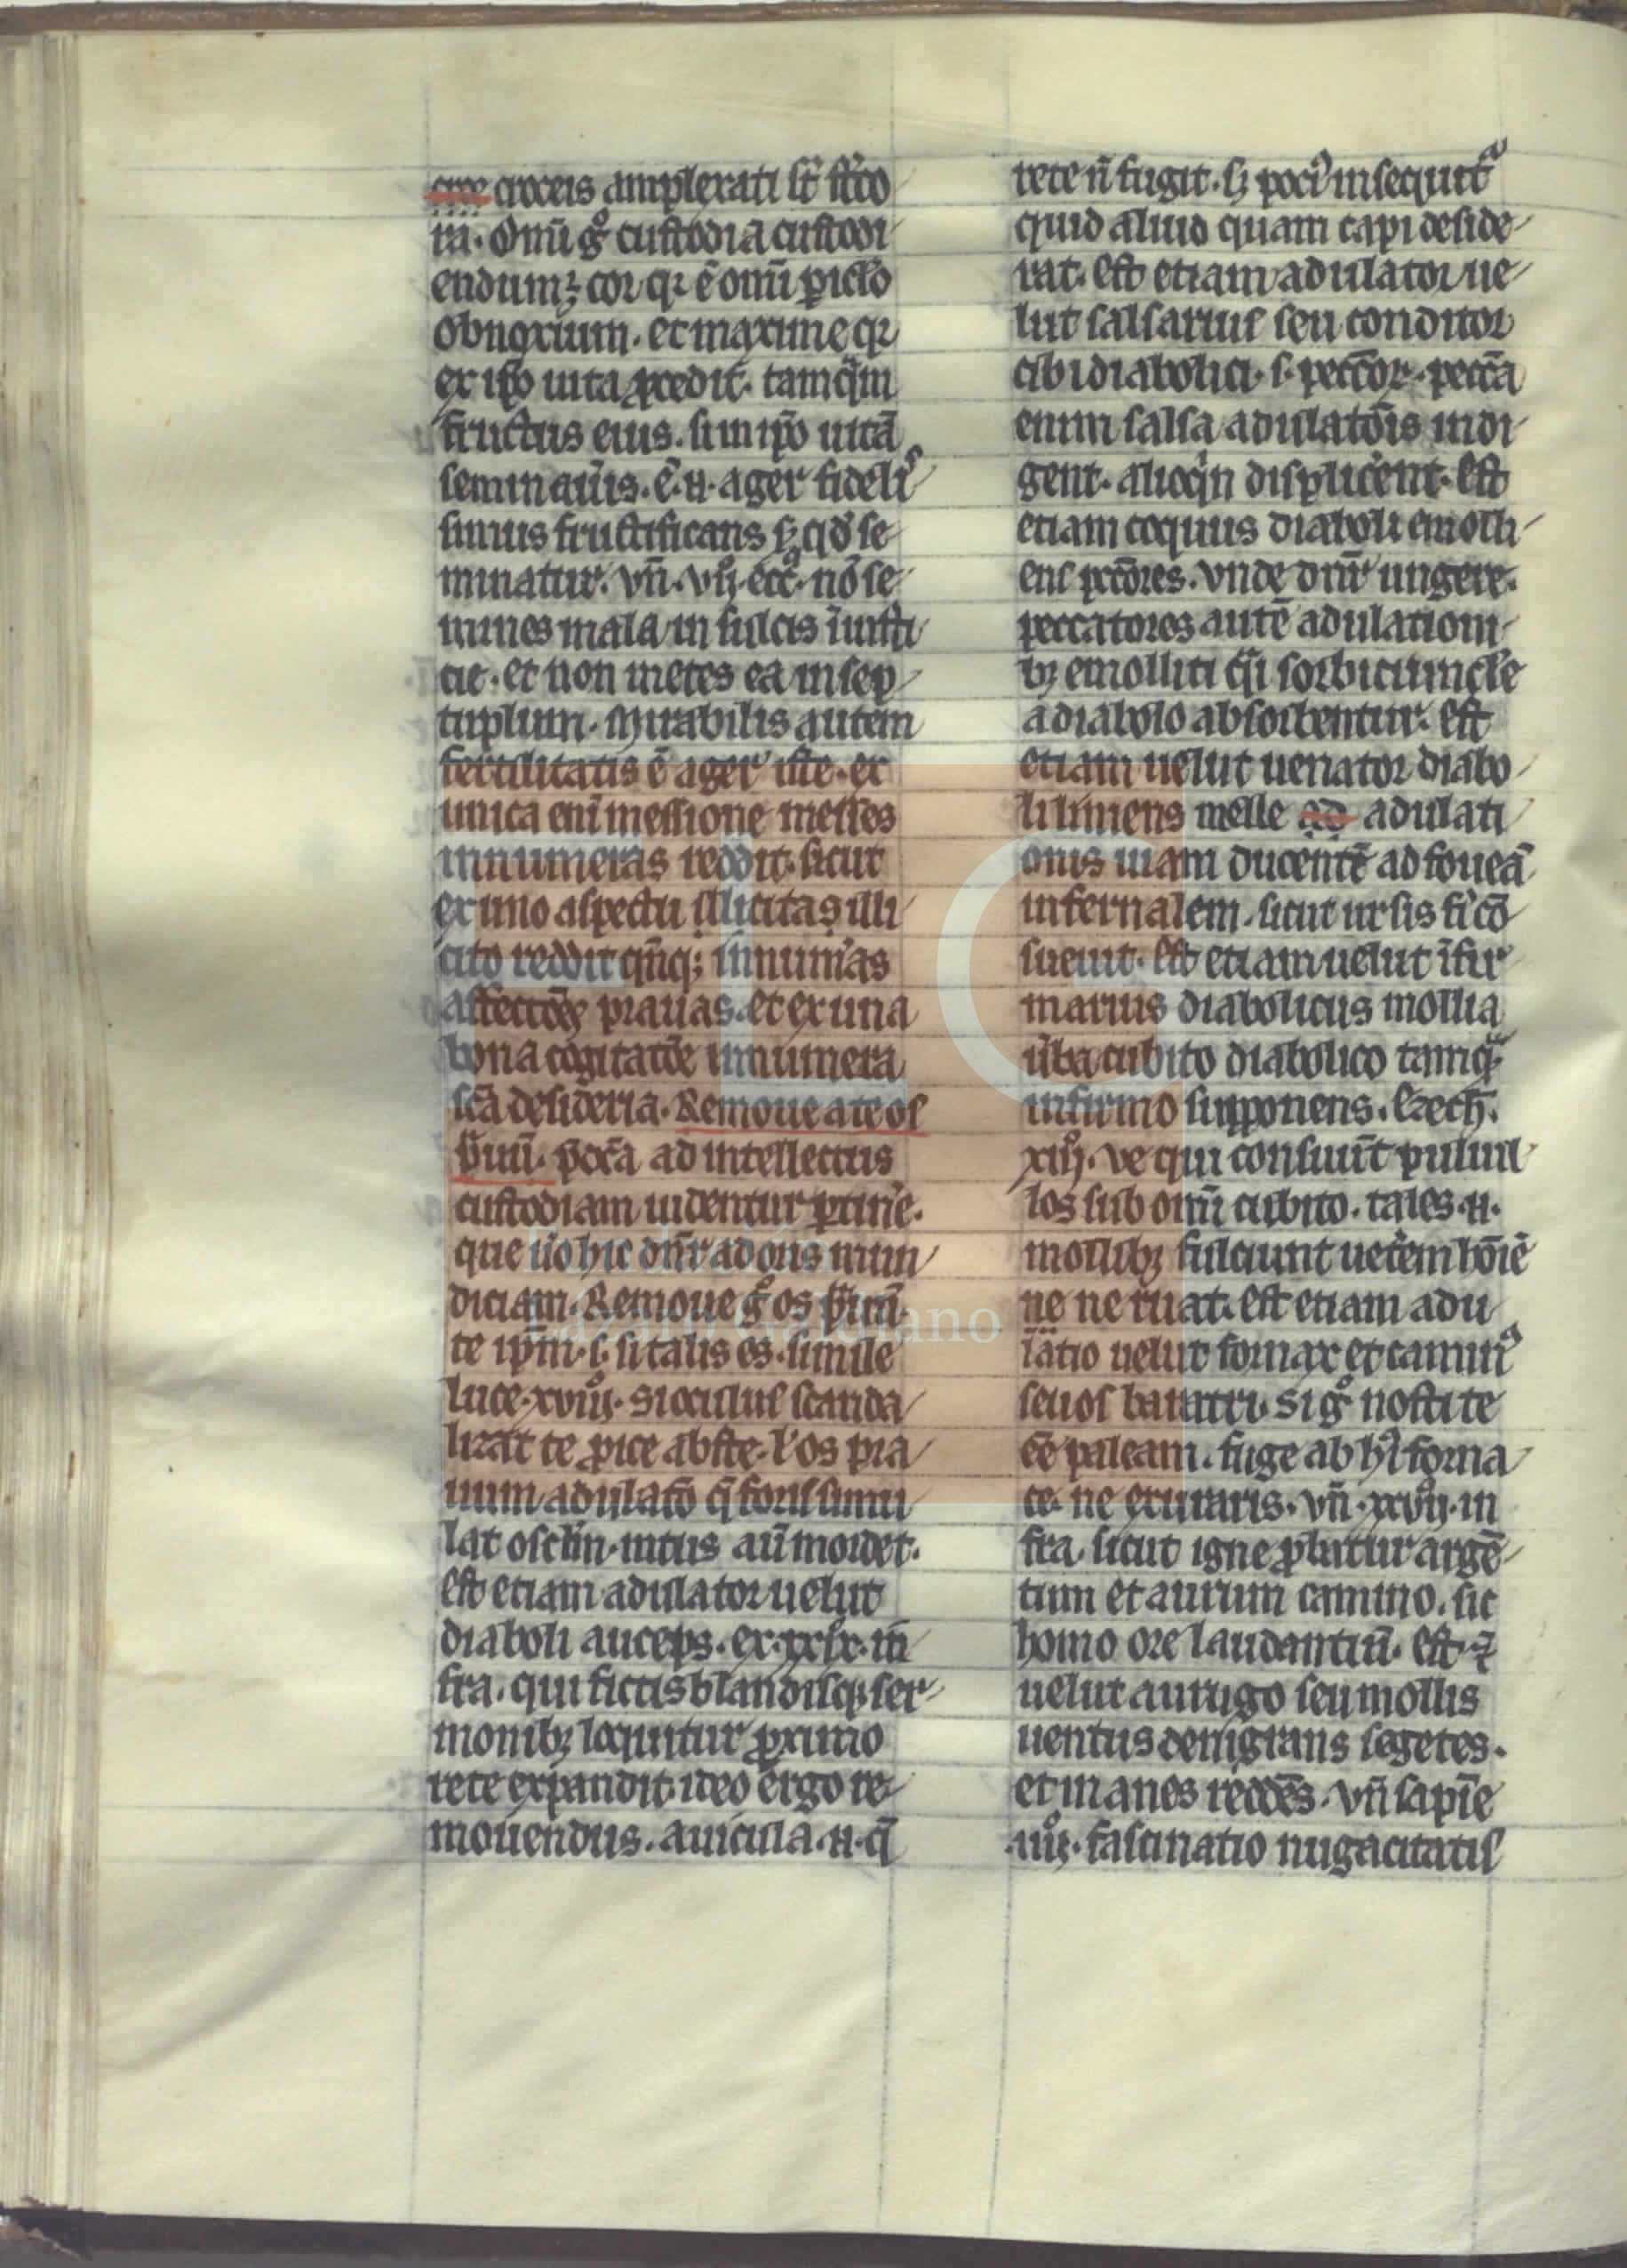 croceis amplexati st̄ st̾co
ra. Omī gͦ custodia custodi
endumꝫ cor qꝛ ē omī ꝑiclo
obnoxium. et maxime qꝛ
ex ip̄o uita ꝓcedit. tamq̄m
fructus eius. si in ip̄o uitā
seminaūis. ē. n̄. ager fideli
simus fructificans ẜꝫ qd̾ se
minatur. vn̄. vijͦ. ecc̄. nō se
mines mala in sulcis īiusti
cie. et non metes ea in sep
tuplum. Mirabilis autem
fertilitatis ē ager iste. et
unica enī messione messes
innumeras reddit. sicut
ex uno aspectu illicitas illi
cito reddit innum̾as
affectōes prauas. et ex una
bona cogitatōe innumera
sc̄a desideria. Remoue a te os
p̄uū. p̄cc̄a ad intellectus
custodiam uidentur ꝑtine̾.
que ūo hic dn̄r ad oris mun
diciam. Remoue gͦ os p̄uū.
te ip̄m. s. si talis es. simile
luce. xviijͦ. Si oculus scanda
lizat te ꝓice abste. l̾ os pra
uum adulatō q̄ foris simu
lat osclm̄. intus aū mordet.
est etiam adulator uelut
diaboli auceps. ex. xxixͦ. in̄
fra. qui fictis blandisqꝫ ser
monibꝫ loquitur ꝓximo
rete expandit. ideo ergo re
mouendus. auicula. n̄. q̄
rete n̄ fugit. sꝫ poci̾ insequit̾
quid aliud quam capi deside
rat. est etiam adulator ue
lut salsarius seu conditor
cibi diabolici. s. pecc̄oꝝ. pecc̄a
enim salsa adulatōis indi
gent. alioqͥn displicēnt. Est
etiam coquus diaboli emolli
ens pcc̄ores. vnde dn̄r ungere.
peccatores autē adulationi
bꝫ emolliti qͣi sorbiciuncl̾e
a diabolo absorbentur. Est
etiam uelut uenator diabo
li liniens melle ad adulati
onis uiam ducentē ad foueā
infernalem. sicut ursis fi̾ cō
sueuit. Est etiam uelut īfir
marius diabolicus mollia
ūba cubito diabolico tamqͣ
infirmo supponens. Ezech̄.
xiijͦ. ve qui consuūt puluil
los sub omī cubito. tales. n̄.
mollibꝫ fulciunt uet̾em hōiē
ne ne ruat. est etiam adu
latio uelut fornax et camin̾
seuos baratri. Si gͦ nosti te
eē paleam. fuge ab hͥ forna
ce. ne exuraris. vn̄. xxvijͦ. in
fra. sicut igne ꝓbatur argē
tum et aurum camino. sic
homo ore laudantiū. Est. ⁊̄
uelut aurugo seu mollis
uentus denigrans segetes.
et inanes reddēs. vn̄ sapīe
.iiijͦ. fascinatio nugacitatis